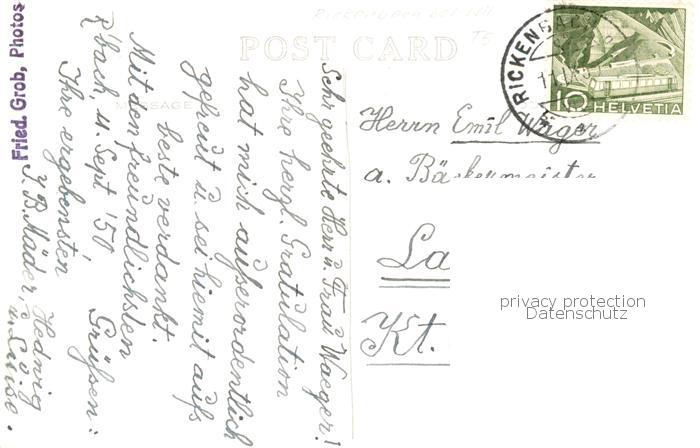 Rickenbach
POST CARD
MESSAGE
Fried. Grob, Photos
RICKENBACH
10
HELVETIA
Sehr geehrte Herr u. Frau Waeger!
Ihre herzl. Gratulation
hat mich außerordentlich
gefreut u. sei hiemit aufs
beste verdankt.
Mit den freundlichsten
Grüßen:
R'bach, 11. Sept '50
Ihre ergebensten
J. B. Mäder,
Hedwig
u. Luise.
Herrn Emil Wäger
a. Bäckermeister
La
Kt.
privacy protection
Datenschutz